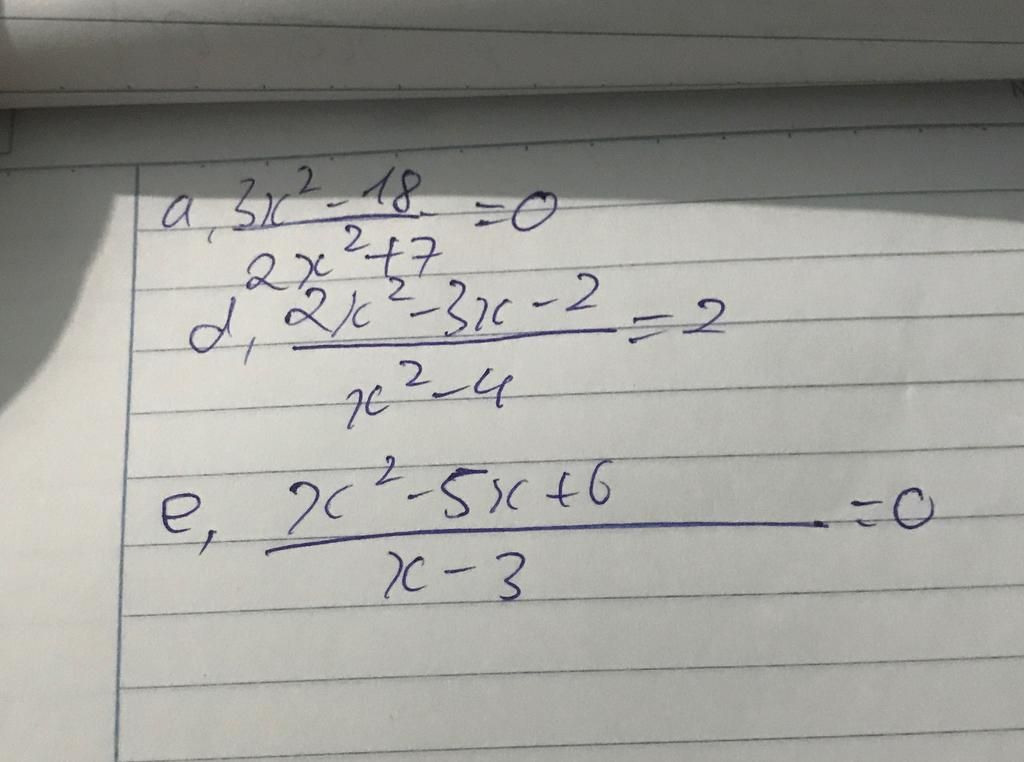 a, 3x² - 18 = 0
2x² + 7
d, 2x² - 3x - 2 = 2
x² - 4
e, x² - 5x + 6 = 0
x - 3